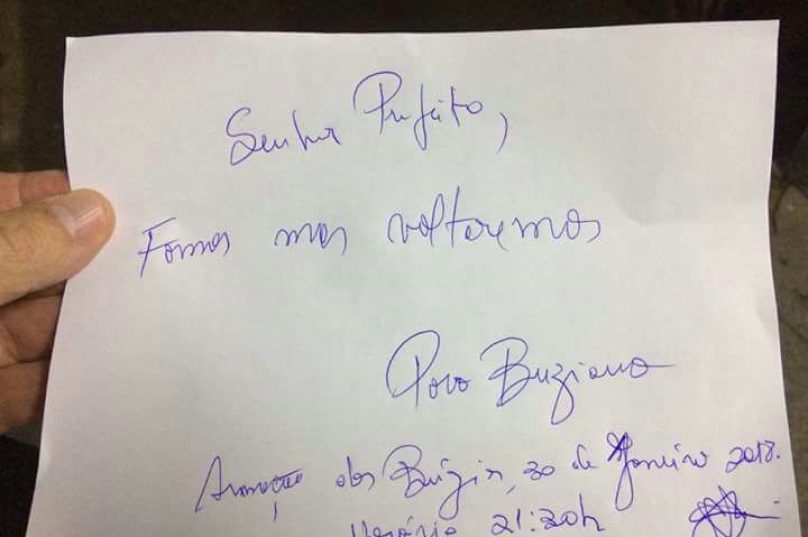 Senhor Prefeito,
Fomos mas voltaremos
Povo Buziano
Armação dos Búzios, 30 de Janeiro 2018.
Horário 21:20h